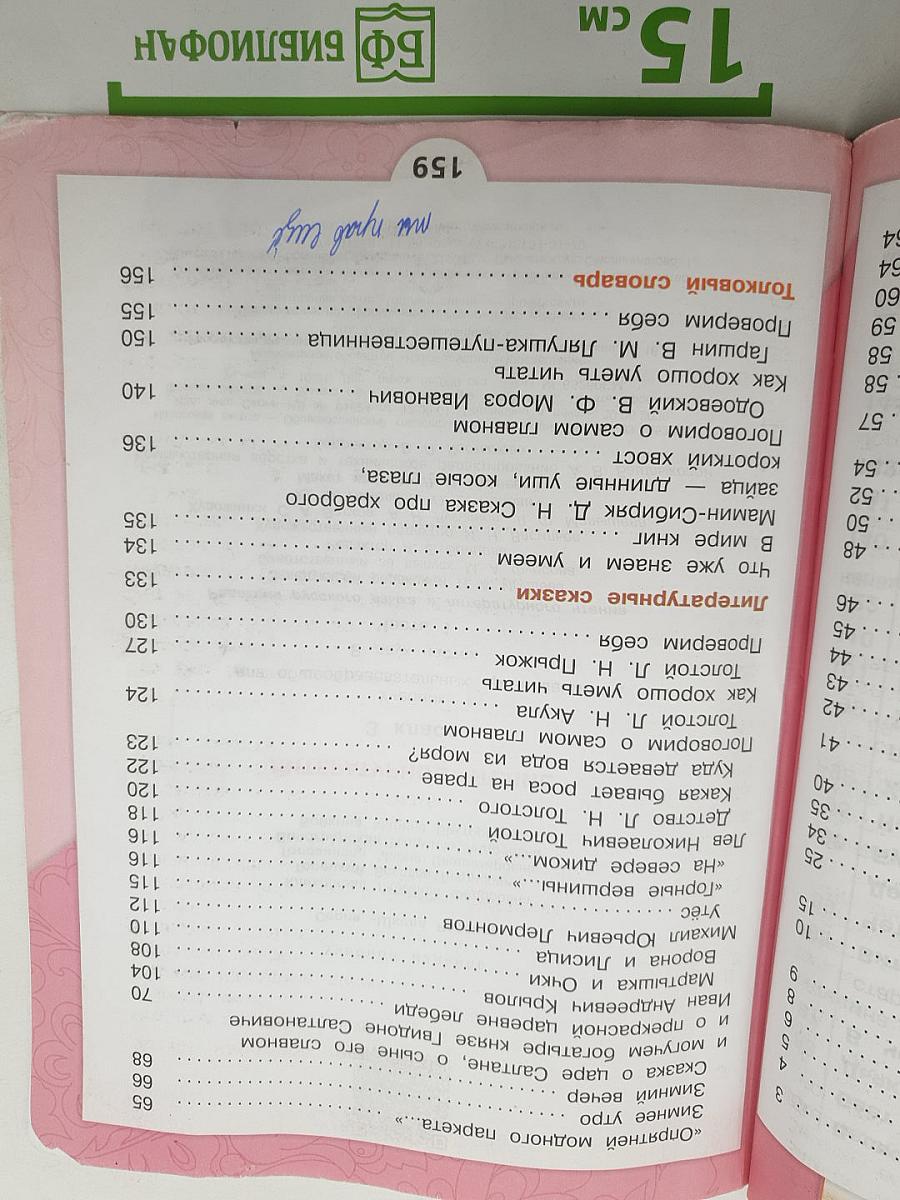 «Опрятней модного паркета...» 65
Зимнее утро 66
Зимний вечер 68
Сказка о царе Салтане, о сыне его славном
и могучем богатыре князе Гвидоне Салтановиче
и о прекрасной царевне лебеди 70
Иван Андреевич Крылов 104
Мартышка и Очки 108
Ворона и Лисица 110
Михаил Юрьевич Лермонтов 112
Утёс 115
«Горные вершины...» 116
«На севере диком...» 116
Лев Николаевич Толстой 118
Детство Л. Н. Толстого 120
Какая бывает роса на траве 122
Куда девается вода из моря? 123
Поговорим о самом главном
Толстой Л. Н. Акула 124
Как хорошо уметь читать
Толстой Л. Н. Прыжок 127
Проверим себя 130
Литературные сказки 133
Что уже знаем и умеем 134
В мире книг 135
Мамин-Сибиряк Д. Н. Сказка про храброго
зайца — длинные уши, косые глаза,
короткий хвост 136
Поговорим о самом главном
Одоевский В. Ф. Мороз Иванович 140
Как хорошо уметь читать
Гаршин В. М. Лягушка-путешественница 150
Проверим себя 155
Толковый словарь 156
159
3
4
5
6
8
9
10
15
25
34
35
40
41
42
43
44
45
46
48
50
52
54
57
58
58
59
60
64
64
15 см
БФ БИБЛИОФАН